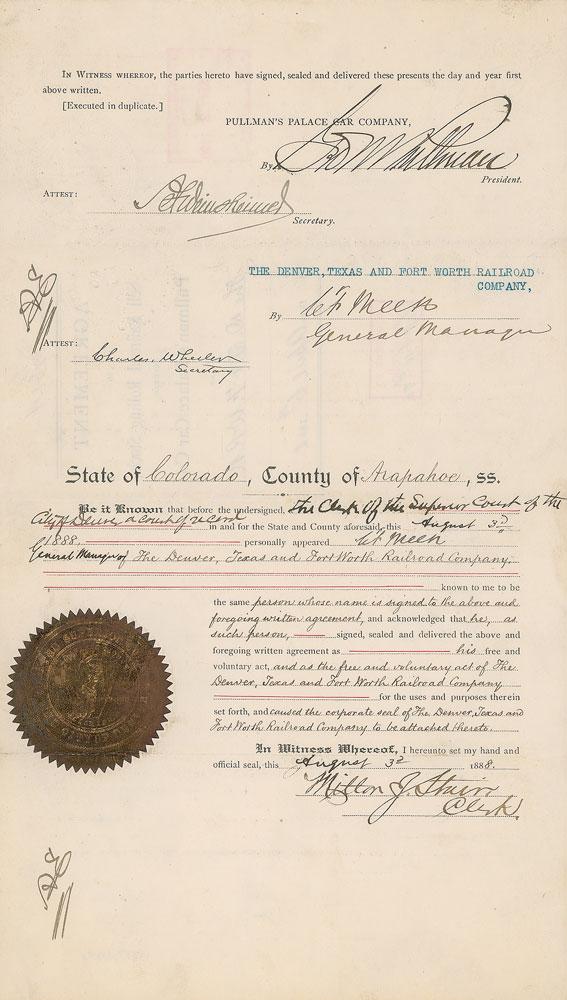 IN WITNESS WHEREOF, the parties hereto have signed, sealed and delivered these presents the day and year first
above written.
[Executed in duplicate.]
PULLMAN'S PALACE CAR COMPANY,
By Geo M Pullman
President.
ATTEST:
A. S. Weinsheimer
Secretary.
THE DENVER, TEXAS AND FORT WORTH RAILROAD
COMPANY,
By C F Meek
General Manager
ATTEST:
Charles Wheeler
Secretary
State of Colorado, County of Arapahoe, ss.
Be it Known that before the undersigned, The Clerk of the Superior Court of the
City of Denver, a court of record in and for the State and County aforesaid, this August 3d
1888. personally appeared C F Meek
General Manager of The Denver, Texas and Fort Worth Railroad Company.
known to me to be
the same person whose name is signed to the above and
foregoing written agreement, and acknowledged that he, as
such person, signed, sealed and delivered the above and
foregoing written agreement as his free and
voluntary act, and as the free and voluntary act of The
Denver, Texas and Fort Worth Railroad Company
for the uses and purposes therein
set forth, and caused the corporate seal of The Denver, Texas and
Fort Worth Railroad Company to be attached thereto.
In Witness Whereof, I hereunto set my hand and
official seal, this August 3d 1888.
Milton J.
Clerk.